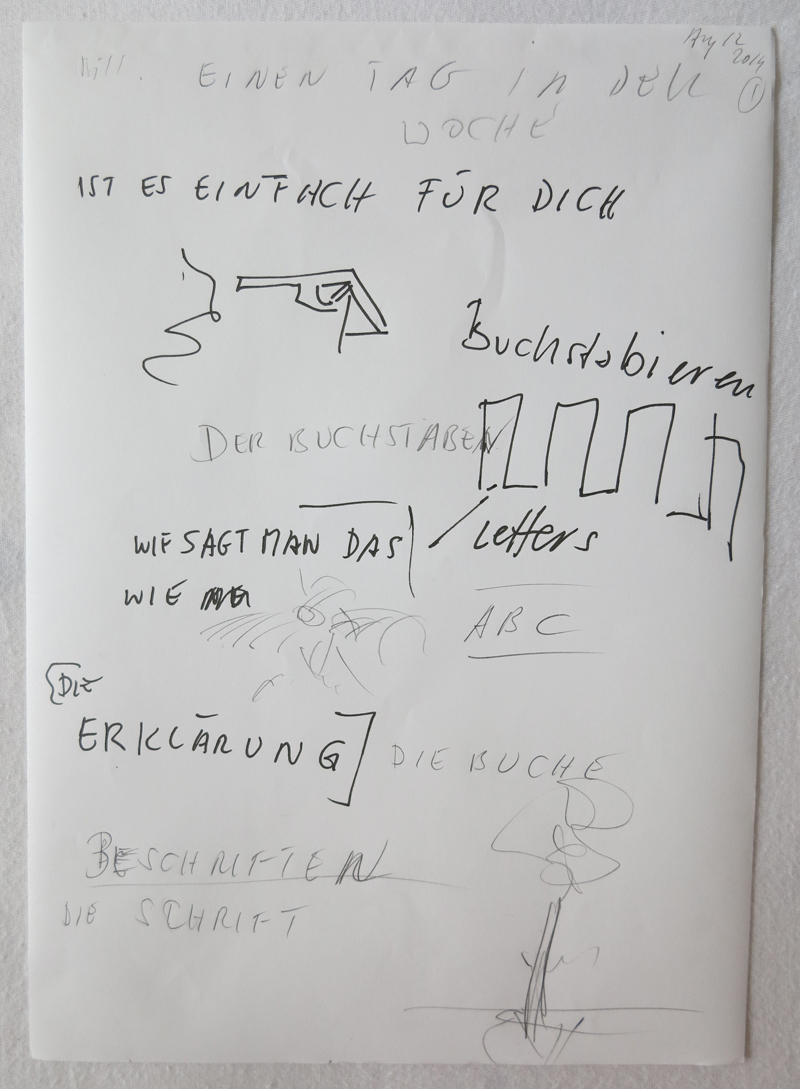 Bill. EINEN TAG IN DER
Aug 12
2014
1
WOCHE
IST ES EINFACH FÜR DICH
Buchstabieren
DER BUCHSTABEN
WIE SAGT MAN DAS
Letters
WIE
ABC
DIE
ERKLÄRUNG
DIE BUCHE
BESCHRIFTEN
DIE SCHRIFT